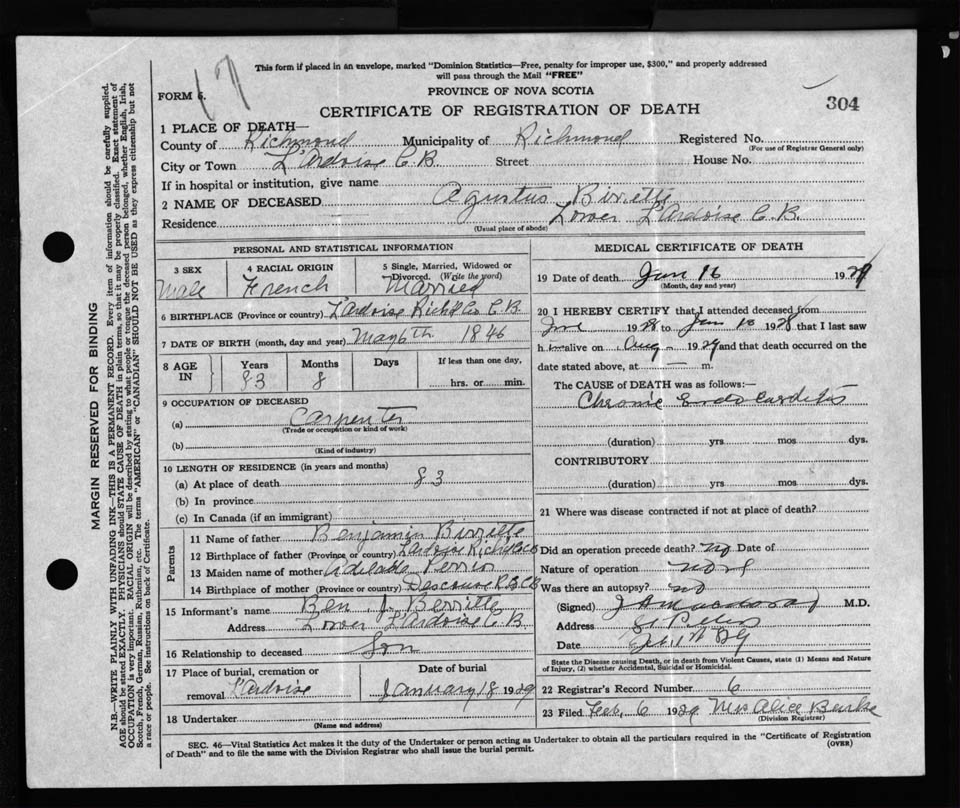 This form if placed in an envelope, marked "Dominion Statistics—Free, penalty for improper use, $300," and properly addressed
will pass through the Mail "FREE"
17
FORM 6.
PROVINCE OF NOVA SCOTIA
304
CERTIFICATE OF REGISTRATION OF DEATH
1 PLACE OF DEATH—
County of Richmond Municipality of Richmond Registered No.
(For use of Registrar General only)
City or Town L'Ardoise C.B Street House No.
If in hospital or institution, give name
2 NAME OF DECEASED Agustus Birrette
Residence Lower L'Ardoise C.B.
(Usual place of abode)
PERSONAL AND STATISTICAL INFORMATION
3 SEX 4 RACIAL ORIGIN 5 Single, Married, Widowed or
Divorced. (Write the word)
Male French Married
6 BIRTHPLACE (Province or country) L'Ardoise Richd Co C.B.
7 DATE OF BIRTH (month, day and year) May 6th 1846
8 AGE IN Years Months Days If less than one day,
83 8 hrs. or min.
9 OCCUPATION OF DECEASED
(a) Carpenter
(Trade or occupation or kind of work)
(b)
(Kind of industry)
10 LENGTH OF RESIDENCE (in years and months)
(a) At place of death 83
(b) In province
(c) In Canada (if an immigrant)
Parents
11 Name of father Benjamin Birrette
12 Birthplace of father (Province or country) Lardoise Richd Co CB
13 Maiden name of mother
14 Birthplace of mother (Province or country) Descouse R. Co CB
15 Informant's name Ben J. Berrette
Address Lower L'Ardoise C.B.
16 Relationship to deceased Son
17 Place of burial, cremation or Date of burial
removal L'ardoise January 18 1929
18 Undertaker
(Name and address)
MEDICAL CERTIFICATE OF DEATH
19 Date of death Jan 16 1929
(Month, day and year)
20 I HEREBY CERTIFY that I attended deceased from
1928 to Jan 1928 that I last saw
h im alive on Aug 1929 and that death occurred on the
date stated above, at — m.
The CAUSE OF DEATH was as follows:—
Chronic Endocarditis
(duration) yrs mos dys.
CONTRIBUTORY
(duration) yrs mos dys.
21 Where was disease contracted if not at place of death?
Did an operation precede death? no Date of
Nature of operation none
Was there an autopsy? no
(Signed) M.D.
Address St Peters
Date
State the Disease causing Death, or in death from Violent Causes, state (1) Means and Nature
of Injury, (2) whether Accidental, Suicidal or Homicidal.
22 Registrar's Record Number 6
23 Filed Feb, 6 1929 Mrs Alice Burke
(Division Registrar)
SEC. 46—Vital Statistics Act makes it the duty of the Undertaker or person acting as Undertaker to obtain all the particulars required in the "Certificate of Registration
of Death" and to file the same with the Division Registrar who shall issue the burial permit. (OVER)
MARGIN RESERVED FOR BINDING
N.B.—WRITE PLAINLY WITH UNFADING INK—THIS IS A PERMANENT RECORD. Every item of information should be carefully supplied.
AGE should be stated EXACTLY. PHYSICIANS should STATE CAUSE OF DEATH in plain terms, so that it may be properly classified. Exact statement of
OCCUPATION is very important. RACIAL ORIGIN will be described by stating to what people or tongue the deceased person belonged, whether English, Irish,
Scotch, French, German, Russian, Ruthenian, etc. The terms "AMERICAN" or "CANADIAN" SHOULD NOT BE USED as they express citizenship but not
a race or people. See instructions on back of Certificate.